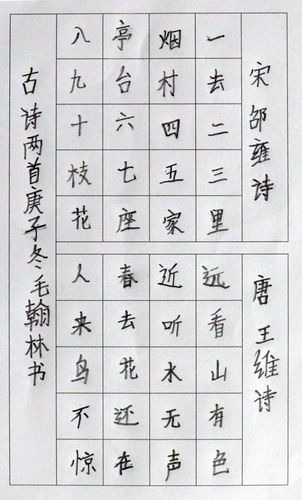 宋邵雍诗
一去二三里
烟村四五家
亭台六七座
八九十枝花
唐王维诗
远看山有色
近听水无声
春去花还在
人来鸟不惊
古诗两首庚子冬毛翰林书